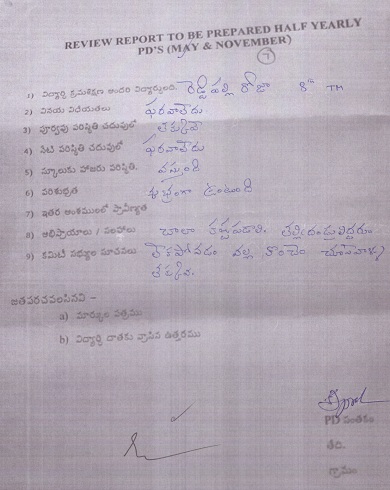 REVIEW REPORT TO BE PREPARED HALF YEARLY
PD'S (MAY & NOVEMBER)
7
1) విద్యార్థి క్రమశిక్షణ అందరి విద్యార్థులది. రెడ్డిపల్లి రోజా 8th TM
2) వినయ విధేయతలు ఫరవాలేదు
3) పూర్వపు పరిస్థితి చదువులో లేక్కువ
4) నేటి పరిస్థితి చదువులో ఫరవాలేదు
5) స్కూలుకు హాజరు పరిస్థితి. వస్తుంది
6) పరిశుభ్రత శుభ్రంగా ఉంటుంది
7) ఇతర అంశములలో ప్రావీణ్యత
8) అభిప్రాయాలు / సలహాలు చాలా కష్టపడాలి. తల్లిదండ్రులిద్దరూ
9) కమిటీ సభ్యుల సూచనలు లేకపోవడం వల్ల, కొంచెం చూసేవాళ్ళు
లేక్కువ.
జతపరచవలసినవి –
a) మార్కుల పత్రము
b) విద్యార్థి దాతకు వ్రాసిన ఉత్తరము
PD సంతకం
తేది.
గ్రామం